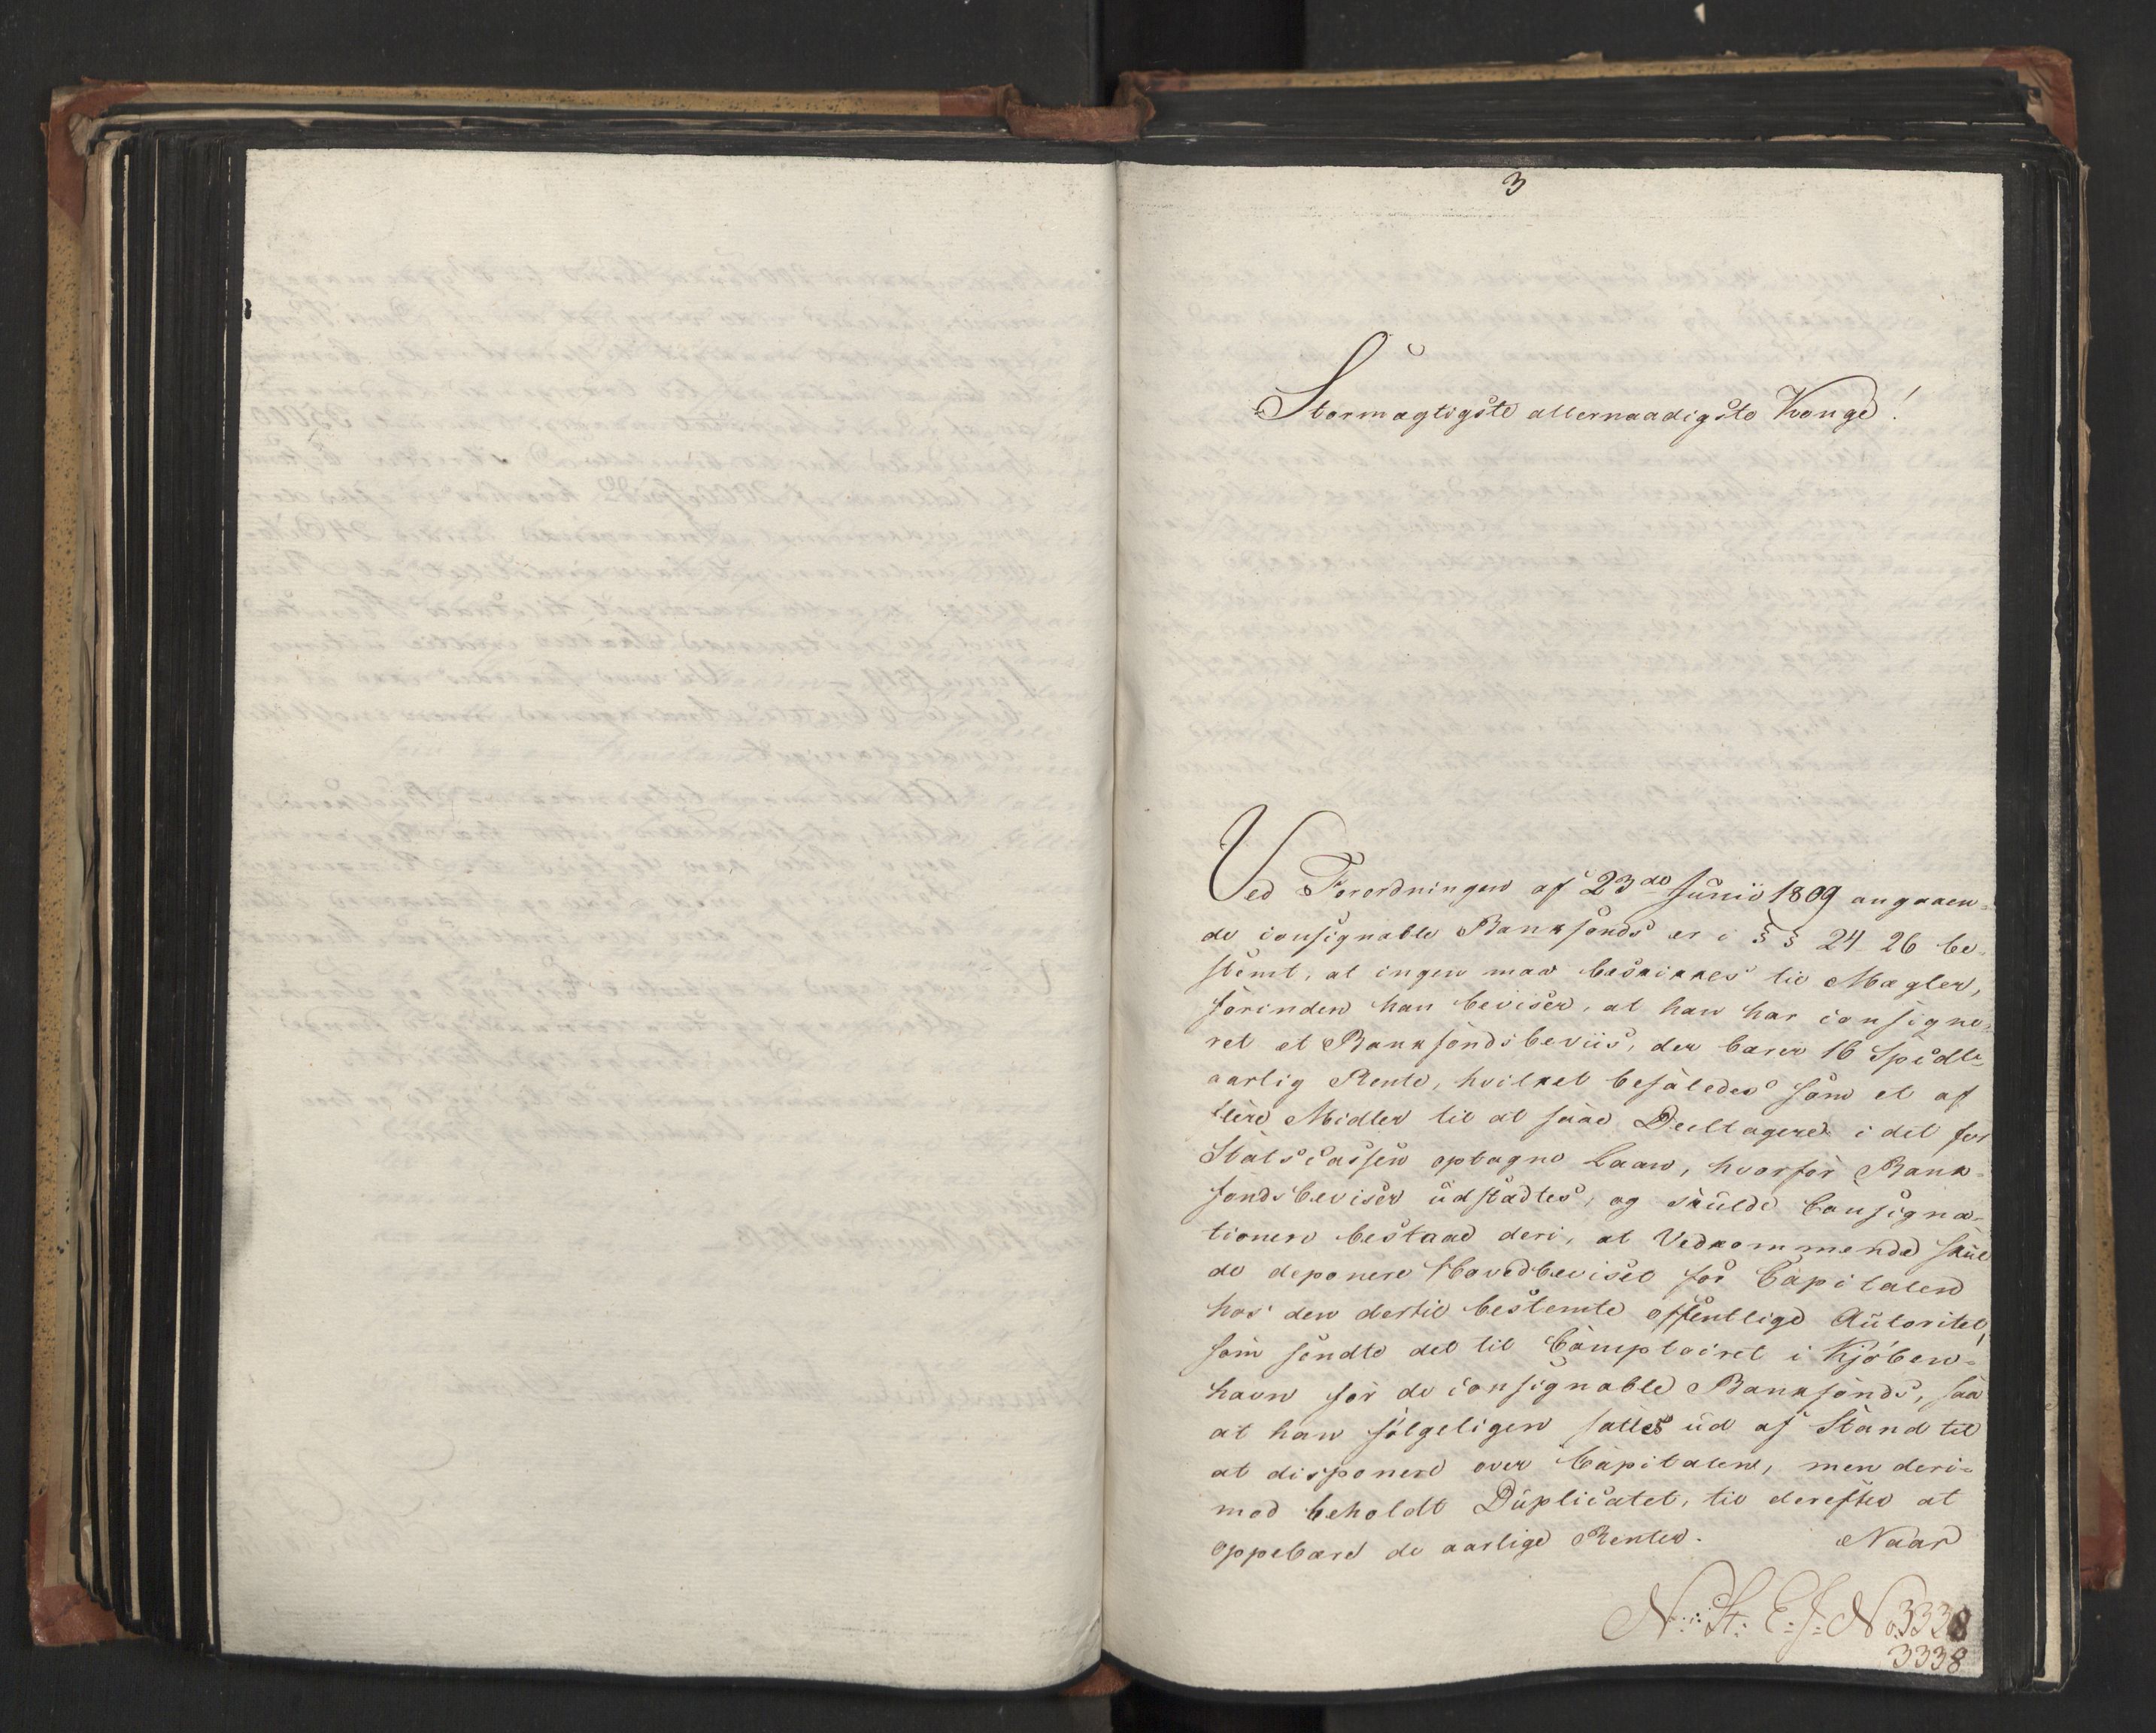 3
Stormægtigste allernaadigste Konge!
Ved Forordningen af 23de Junii 1809 angaaen-
de consignable Bankfonds er i §§ 24 26 be-
stemt, at ingen maa beskikkes til Mægler,
forinden han beviser, at han har consigne-
ret et Bankfondsbeviis, der bærer 16 Spidlr
aarlig Rente, hvilket befaledes som et af
flere Midler til at faae Deeltagere i det for
Statscassen optagne Laan, hvorfor Bank-
fondsbeviser udstædtes, og skulde Consigna-
tionen bestaae deri, at Vedkommende skul
de deponere Hovedbeviset for Capitalen
hos den dertil bestemte offentlige Autoritet,
som sendte det til Comptoiret i Kjøben-
havn for de consignable Bankfonds, saa
at han følgeligen sattes ud af Stand til
at disponere over Capitalen, men deri-
mod beholdt Duplicatet, til derefter at
oppebære de aarlige Renter. Naar
N: St: E: J: No 3338
3338